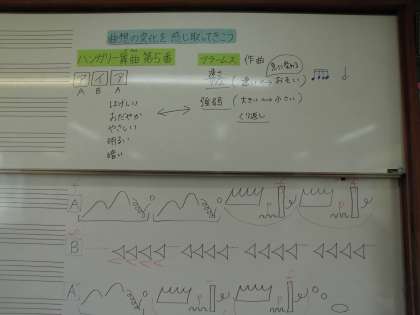 曲想の変化を感じ取ってきこう
ハンガリー舞曲第5番
ブラームス 作曲
ア イ ア
A B A
急に変わる
速さ
(速い おそい)
強弱 (大きい 小さい)
くり返し
はげしい
おだやか
やさしい
明るい
暗い
A
B
A